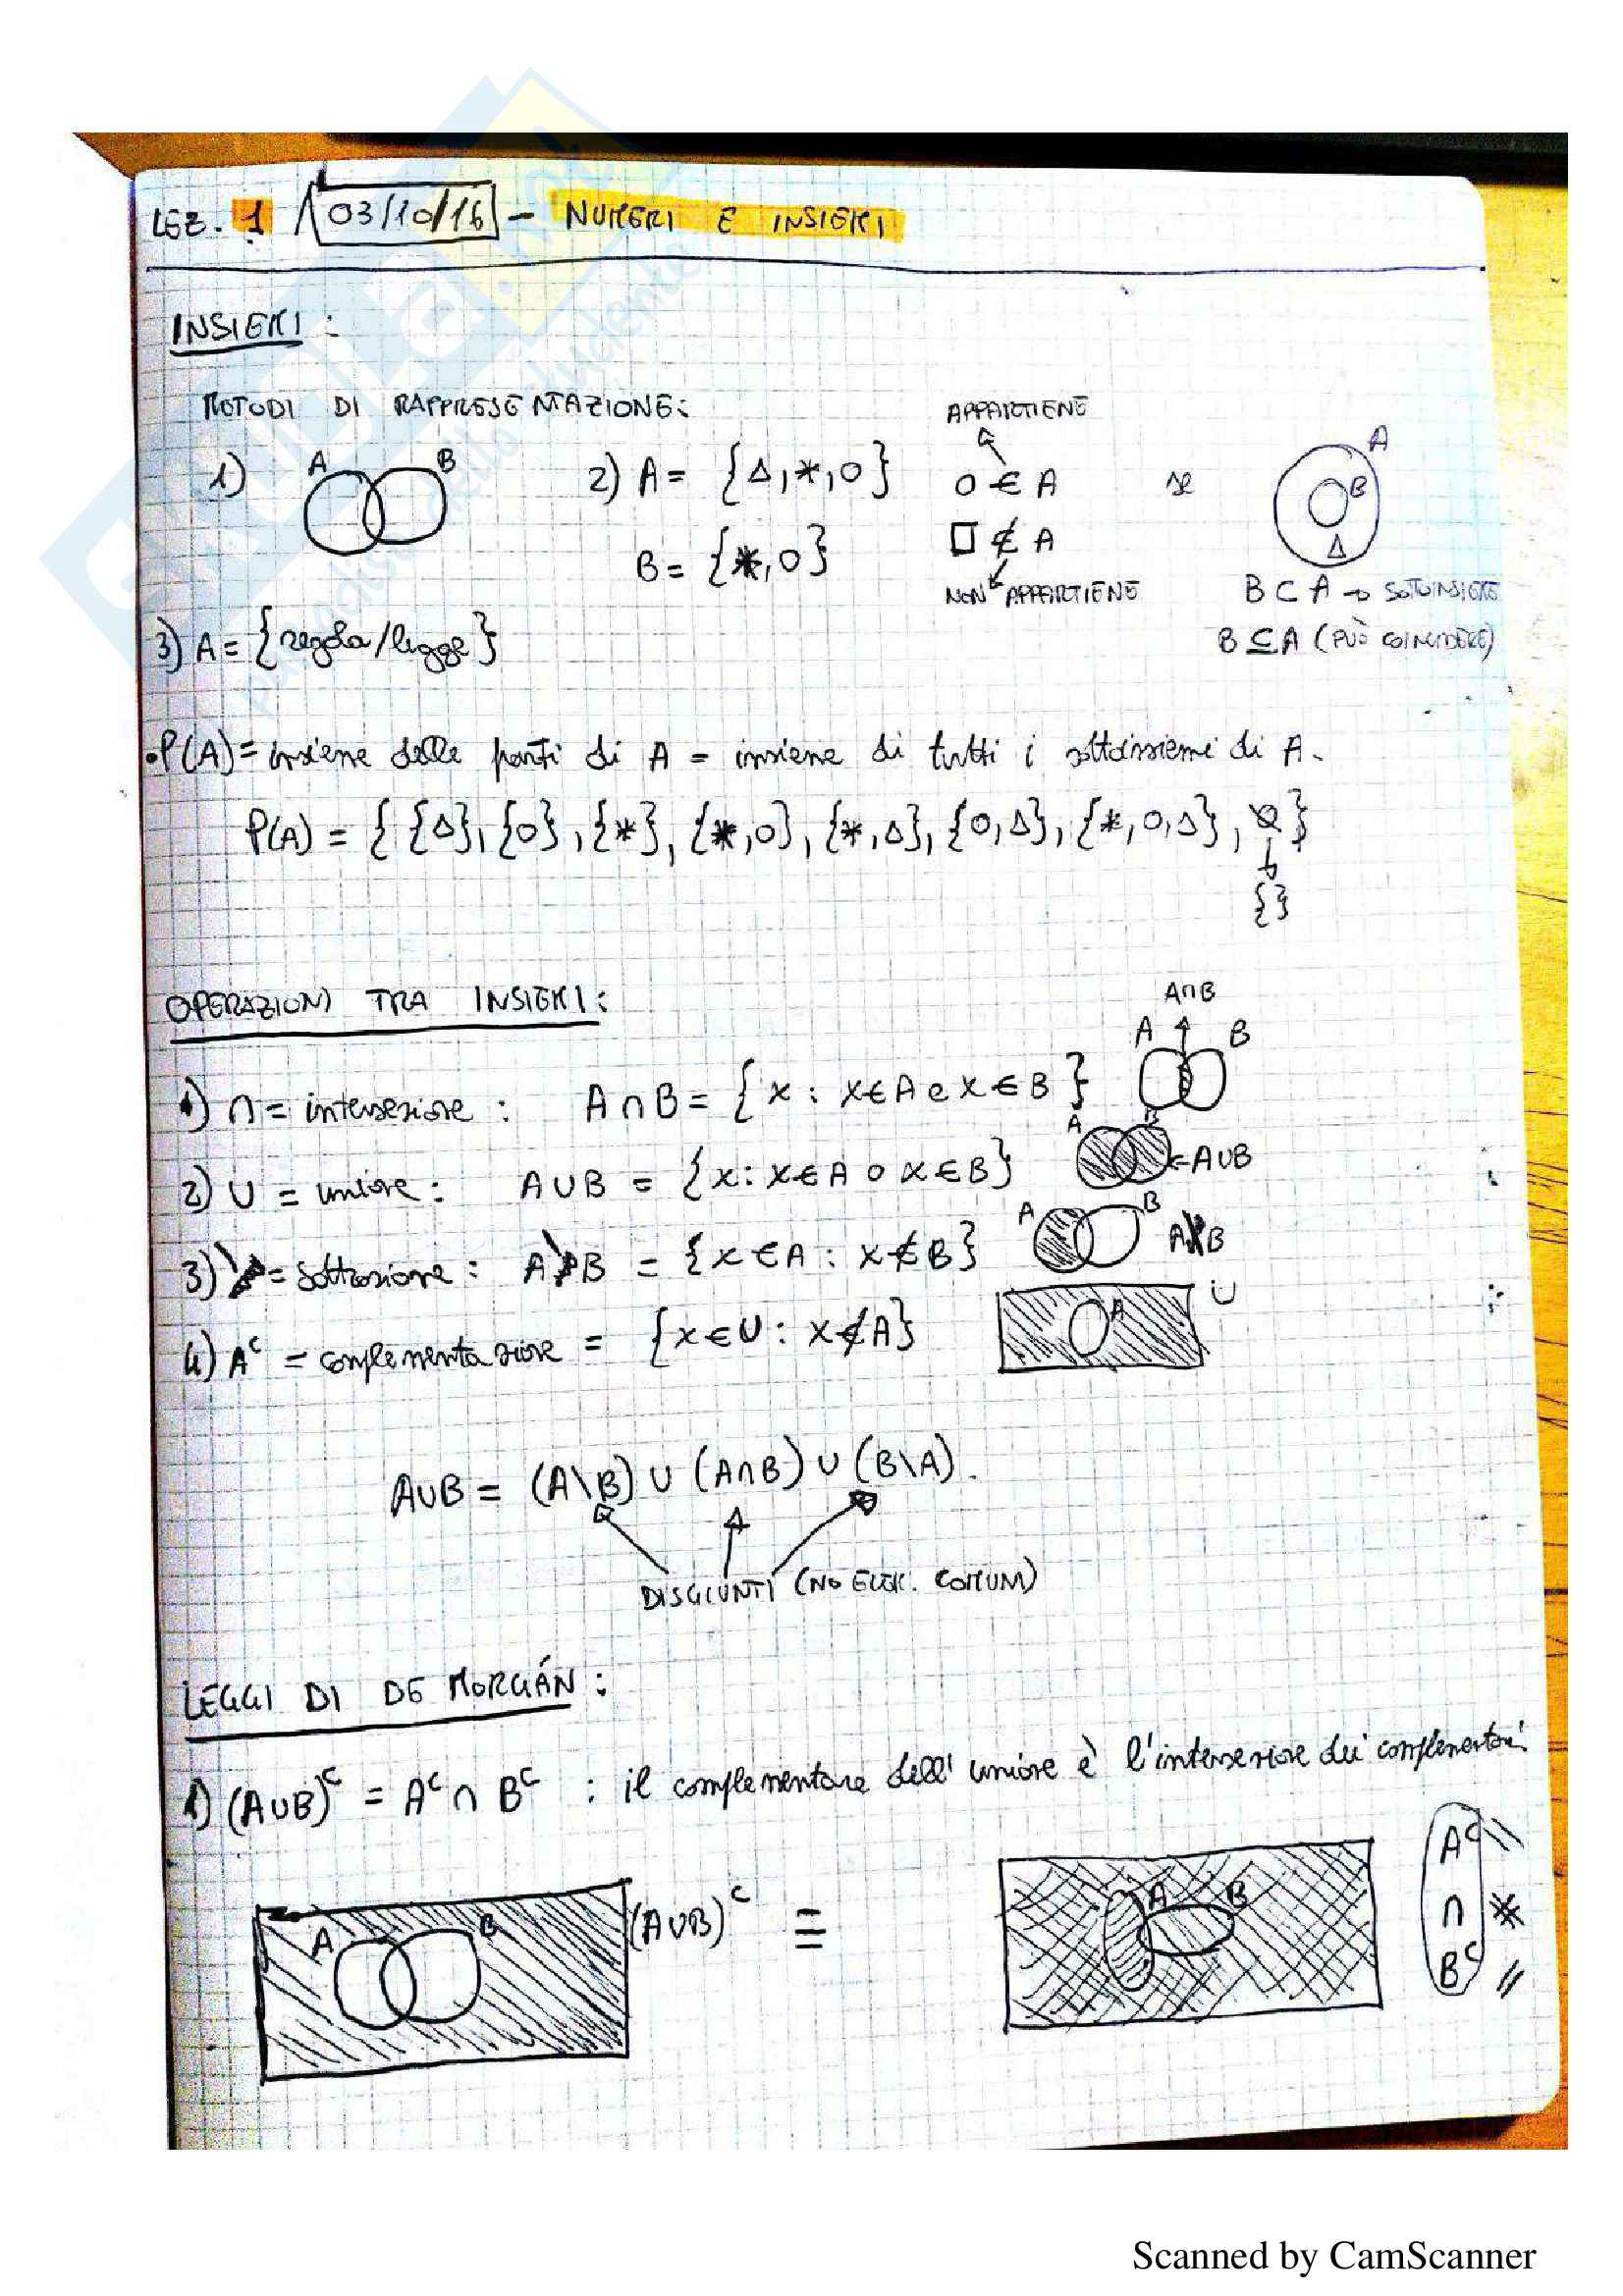 LEZ. 1 03/10/16 - NUMERI E INSIEMI
INSIEMI:
METODI DI RAPPRESENTAZIONE:
1) A B
2) A = {Δ, *, O}
B = {*, O}
APPARTIENE
O ∈ A
□ ∉ A
NON APPARTIENE
se
A
B
Δ
B ⊂ A → SOTTOINSIEME
B ⊆ A (PUÒ COINCIDERE)
3) A = {regola/legge}
• P(A) = insieme delle parti di A = insieme di tutti i sottoinsiemi di A.
P(A) = { {Δ}, {O}, {*}, {*, O}, {*, Δ}, {O, Δ}, {*, O, Δ}, ∅ }
{}
OPERAZIONI TRA INSIEMI:
A∩B
A B
1) ∩ = intersezione : A ∩ B = { x : x ∈ A e x ∈ B }
A B
2) U = unione : A U B = {x : x ∈ A o x ∈ B} ← A U B
A B
3) \ = sottrazione : A \ B = {x ∈ A : x ∉ B} A \ B
4) Aᶜ = complementazione = {x ∈ U : x ∉ A} A U
A U B = (A\B) U (A∩B) U (B\A).
DISGIUNTI (NO ELEM. COMUNI)
LEGGI DI DE MORGÁN :
1) (A U B)ᶜ = Aᶜ ∩ Bᶜ : il complementare dell' unione è l'intersezione dei complementari
A B (A U B)ᶜ = A B
Aᶜ \\
∩
Bᶜ //
Scanned by CamScanner